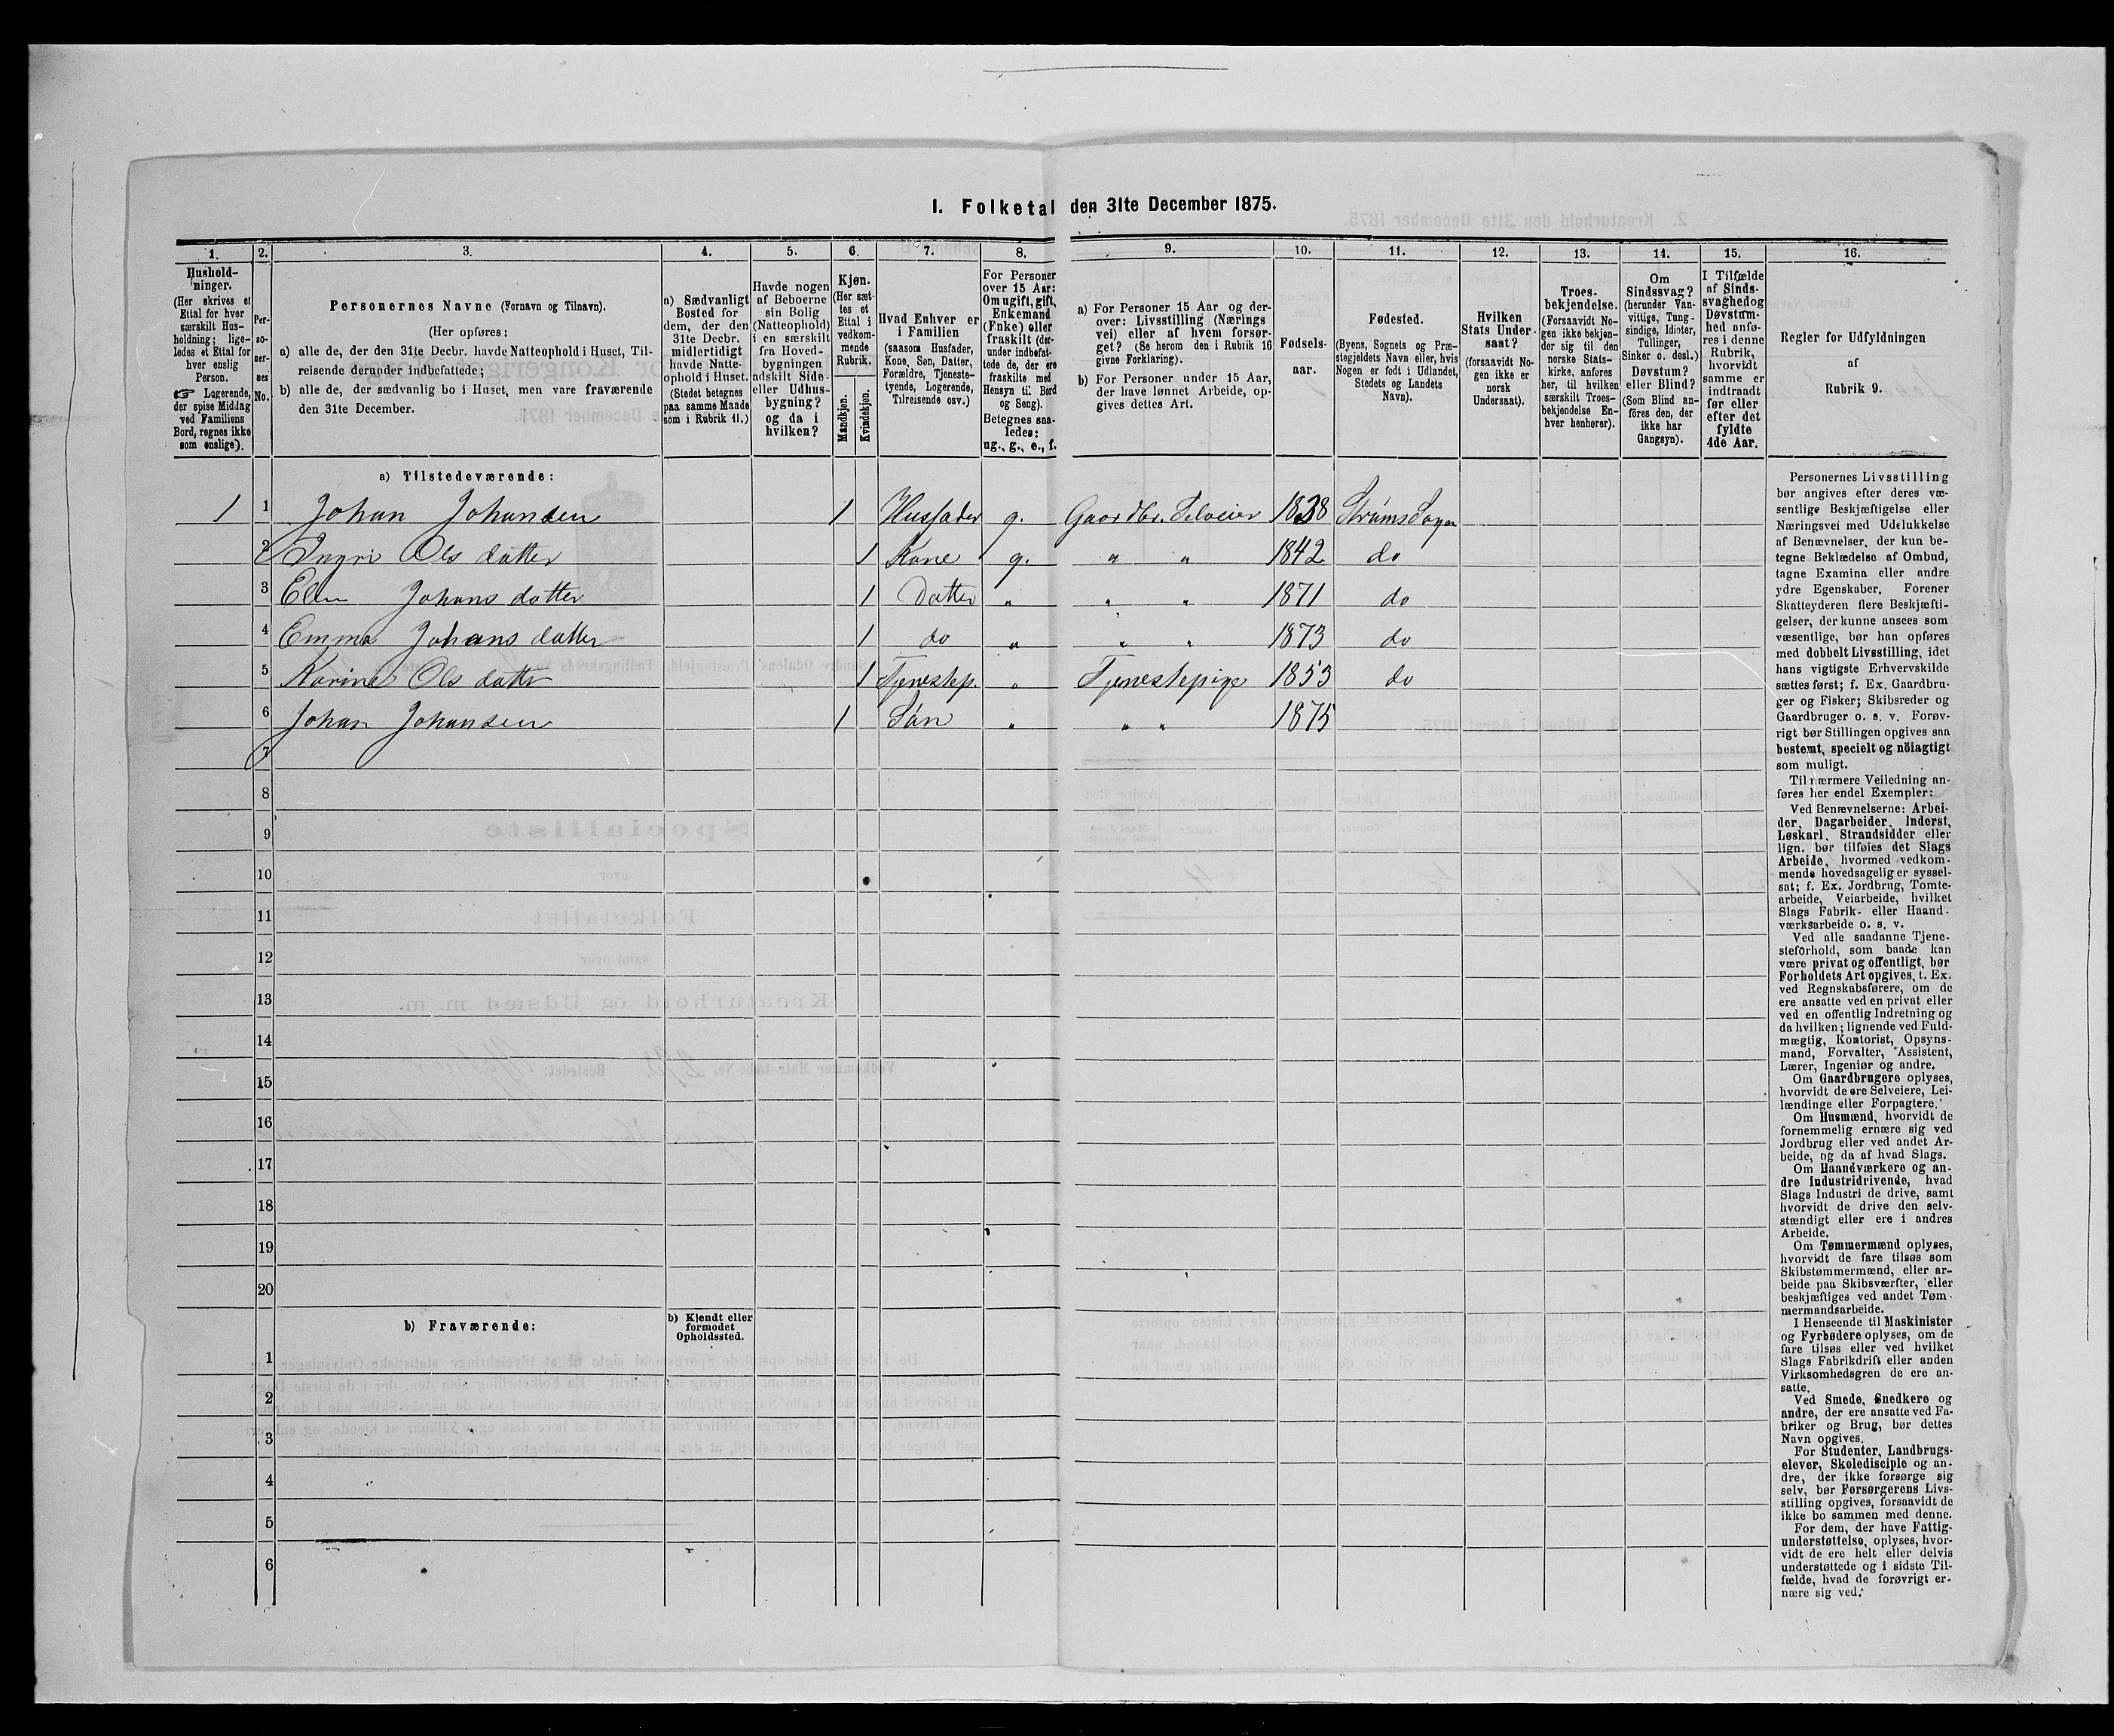 I. Folketal den 31te December 1875.
1. 2. 3. 4. 5. 6. 7. 8. 9. 10. 11. 12. 13. 14. 15. 16.
Hushold-
ninger.
(Her skrives et
Ettal for hver
særskilt Hus-
holdning; lige-
ledes et Ettal for
hver enslig
Person.
☞ Logerende,
der spise Middag
ved Familiens
Bord, regnes ikke
som enslige).
Per-
so-
ner-
nes
No.
Personernes Navne (Fornavn og Tilnavn).
(Her opføres:
a) alle de, der den 31te Decbr. havde Natteophold i Huset, Til-
reisende derunder indbefattede;
b) alle de, der sædvanlig bo i Huset, men vare fraværende
den 31te December.
a) Sædvanligt
Bosted for
dem, der den
31te Decbr.
midlertidigt
havde Natte-
ophold i Huset.
(Stedet betegnes
paa samme Maade
som i Rubrik 11.)
Havde nogen
af Beboerne
sin Bolig
(Natteophold)
i en særskilt
fra Hoved-
bygningen
adskilt Side-
eller Udhus-
bygning?
og da i
hvilken?
Kjøn.
(Her sæt-
tes et
Ettal i
vedkom-
mende
Rubrik.
Mandkjøn.
Kvindekjøn.
Hvad Enhver er
i Familien
(saasom Husfader,
Kone, Søn, Datter,
Forældre, Tjeneste-
tyende, Logerende,
Tilreisende osv.)
For Personer
over 15 Aar:
Om ugift, gift,
Enkemand
(Enke) eller
fraskilt (der-
under indbefat-
tede de, der ere
fraskilte med
Hensyn til Bord
og Seng).
Betegnes saa-
ledes:
ug., g., e., f.
a) For Personer 15 Aar og der-
over: Livsstilling (Nærings
vei) eller af hvem forsør-
get? (Se herom den i Rubrik 16
givne Forklaring).
b) For Personer under 15 Aar,
der have lønnet Arbeide, op-
gives dettes Art.
Fødsels-
aar.
Fødested.
(Byens, Sognets og Præ-
stegjeldets Navn eller, hvis
Nogen er født i Udlandet,
Stedets og Landets
Navn).
Hvilken
Stats Under-
saat?
(forsaavidt No-
gen ikke er
norsk
Undersaat).
Troes-
bekjendelse.
(Forsaavidt No-
gen ikke bekjen-
der sig til den
norske Stats-
kirke, anføres
her, til hvilken
særskilt Troes-
bekjendelse En-
hver henhører).
Om
Sindssvag?
(herunder Van-
vittige, Tung-
sindige, Idioter,
Tullinger,
Sinker o. desl.)
Døvstum?
eller Blind?
(Som Blind an-
føres den, der
ikke har
Gangsyn).
I Tilfælde
af Sinds-
svaghed og
Døvstum-
hed anfø-
res i denne
Rubrik,
hvorvidt
samme er
indtraadt
før eller
efter det
fyldte
4de Aar.
Regler for Udfyldningen
af
Rubrik 9.
a) Tilstedeværende:
1 1 Johan Johansen 1 Husfader g. Gaardbr. Selveier 1838 Strøms Sogn
2 Ingri Olsdatter 1 Kone g. " " 1842 do
3 Elen Johansdatter 1 Datter " " " 1871 do
4 Emma Johansdatter 1 do " " " 1873 do
5 Karine Olsdatter 1 Tjenestep. " Tjenestepige 1853 do
6 Johan Johansen 1 Søn " " " 1875
7
8
9
10
11
12
13
14
15
16
17
18
19
20
b) Fraværende:
b) Kjendt eller
formodet
Opholdssted.
1
2
3
4
5
6
Personernes Livsstilling
bør angives efter deres væ-
sentlige Beskjæftigelse eller
Næringsvei med Udelukkelse
af Benævnelser, der kun be-
tegne Beklædelse af Ombud,
tagne Examina eller andre
ydre Egenskaber. Forener
Skatteyderen flere Beskjæfti-
gelser, der kunne ansees som
væsentlige, bør han opføres
med dobbelt Livsstilling, idet
hans vigtigste Erhvervskilde
sættes først; f. Ex. Gaardbru-
ger og Fisker; Skibsreder og
Gaardbruger o. s. v. Forøv-
rigt bør Stillingen opgives saa
bestemt, specielt og nøiagtigt
som muligt.
Til nærmere Veiledning an-
føres her endel Exempler:
Ved Benævnelserne: Arbei-
der, Dagarbeider, Inderst,
Løskarl, Strandsidder eller
lign. bør tilføies det Slags
Arbeide, hvormed vedkom-
mende hovedsagelig er syssel-
sat; f. Ex. Jordbrug, Tomte-
arbeide, Veiarbeide, hvilket
Slags Fabrik- eller Haand-
værksarbeide o. s. v.
Ved alle saadanne Tjene-
steforhold, som baade kan
være privat og offentligt, bør
Forholdets Art opgives, t. Ex.
ved Regnskabsførere, om de
ere ansatte ved en privat eller
ved en offentlig Indretning og
da hvilken; lignende ved Fuld-
mægtig, Kontorist, Opsyns-
mand, Forvalter, Assistent,
Lærer, Ingeniør og andre.
Om Gaardbrugere oplyses,
hvorvidt de ere Selveiere, Lei-
lændinge eller Forpagtere.
Om Husmænd, hvorvidt de
fornemmelig ernære sig ved
Jordbrug eller ved andet Ar-
beide, og da af hvad Slags.
Om Haandværkere og an-
dre Industridrivende, hvad
Slags Industri de drive, samt
hvorvidt de drive den selv-
stændigt eller ere i andres
Arbeide.
Om Tømmermænd oplyses,
hvorvidt de fare tilsøs som
Skibstømmermænd, eller ar-
beide paa Skibsværfter, eller
beskjæftiges ved andet Tøm-
mermandsarbeide.
I Henseende til Maskinister
og Fyrbødere oplyses, om de
fare tilsøs eller ved hvilket
Slags Fabrikdrift eller anden
Virksomhedsgren de ere an-
satte.
Ved Smede, Snedkere og
andre, der ere ansatte ved Fa-
briker og Brug, bør dettes
Navn opgives.
For Studenter, Landbrugs-
elever, Skoledisciple og an-
dre, der ikke forsørge sig
selv, bør Forsørgerens Livs-
stilling opgives, forsaavidt de
ikke bo sammen med denne.
For dem, der have Fattig-
understøttelse, oplyses, hvor-
vidt de ere helt eller delvis
understøttede og i sidste Til-
fælde, hvad de forøvrigt er-
nære sig ved.